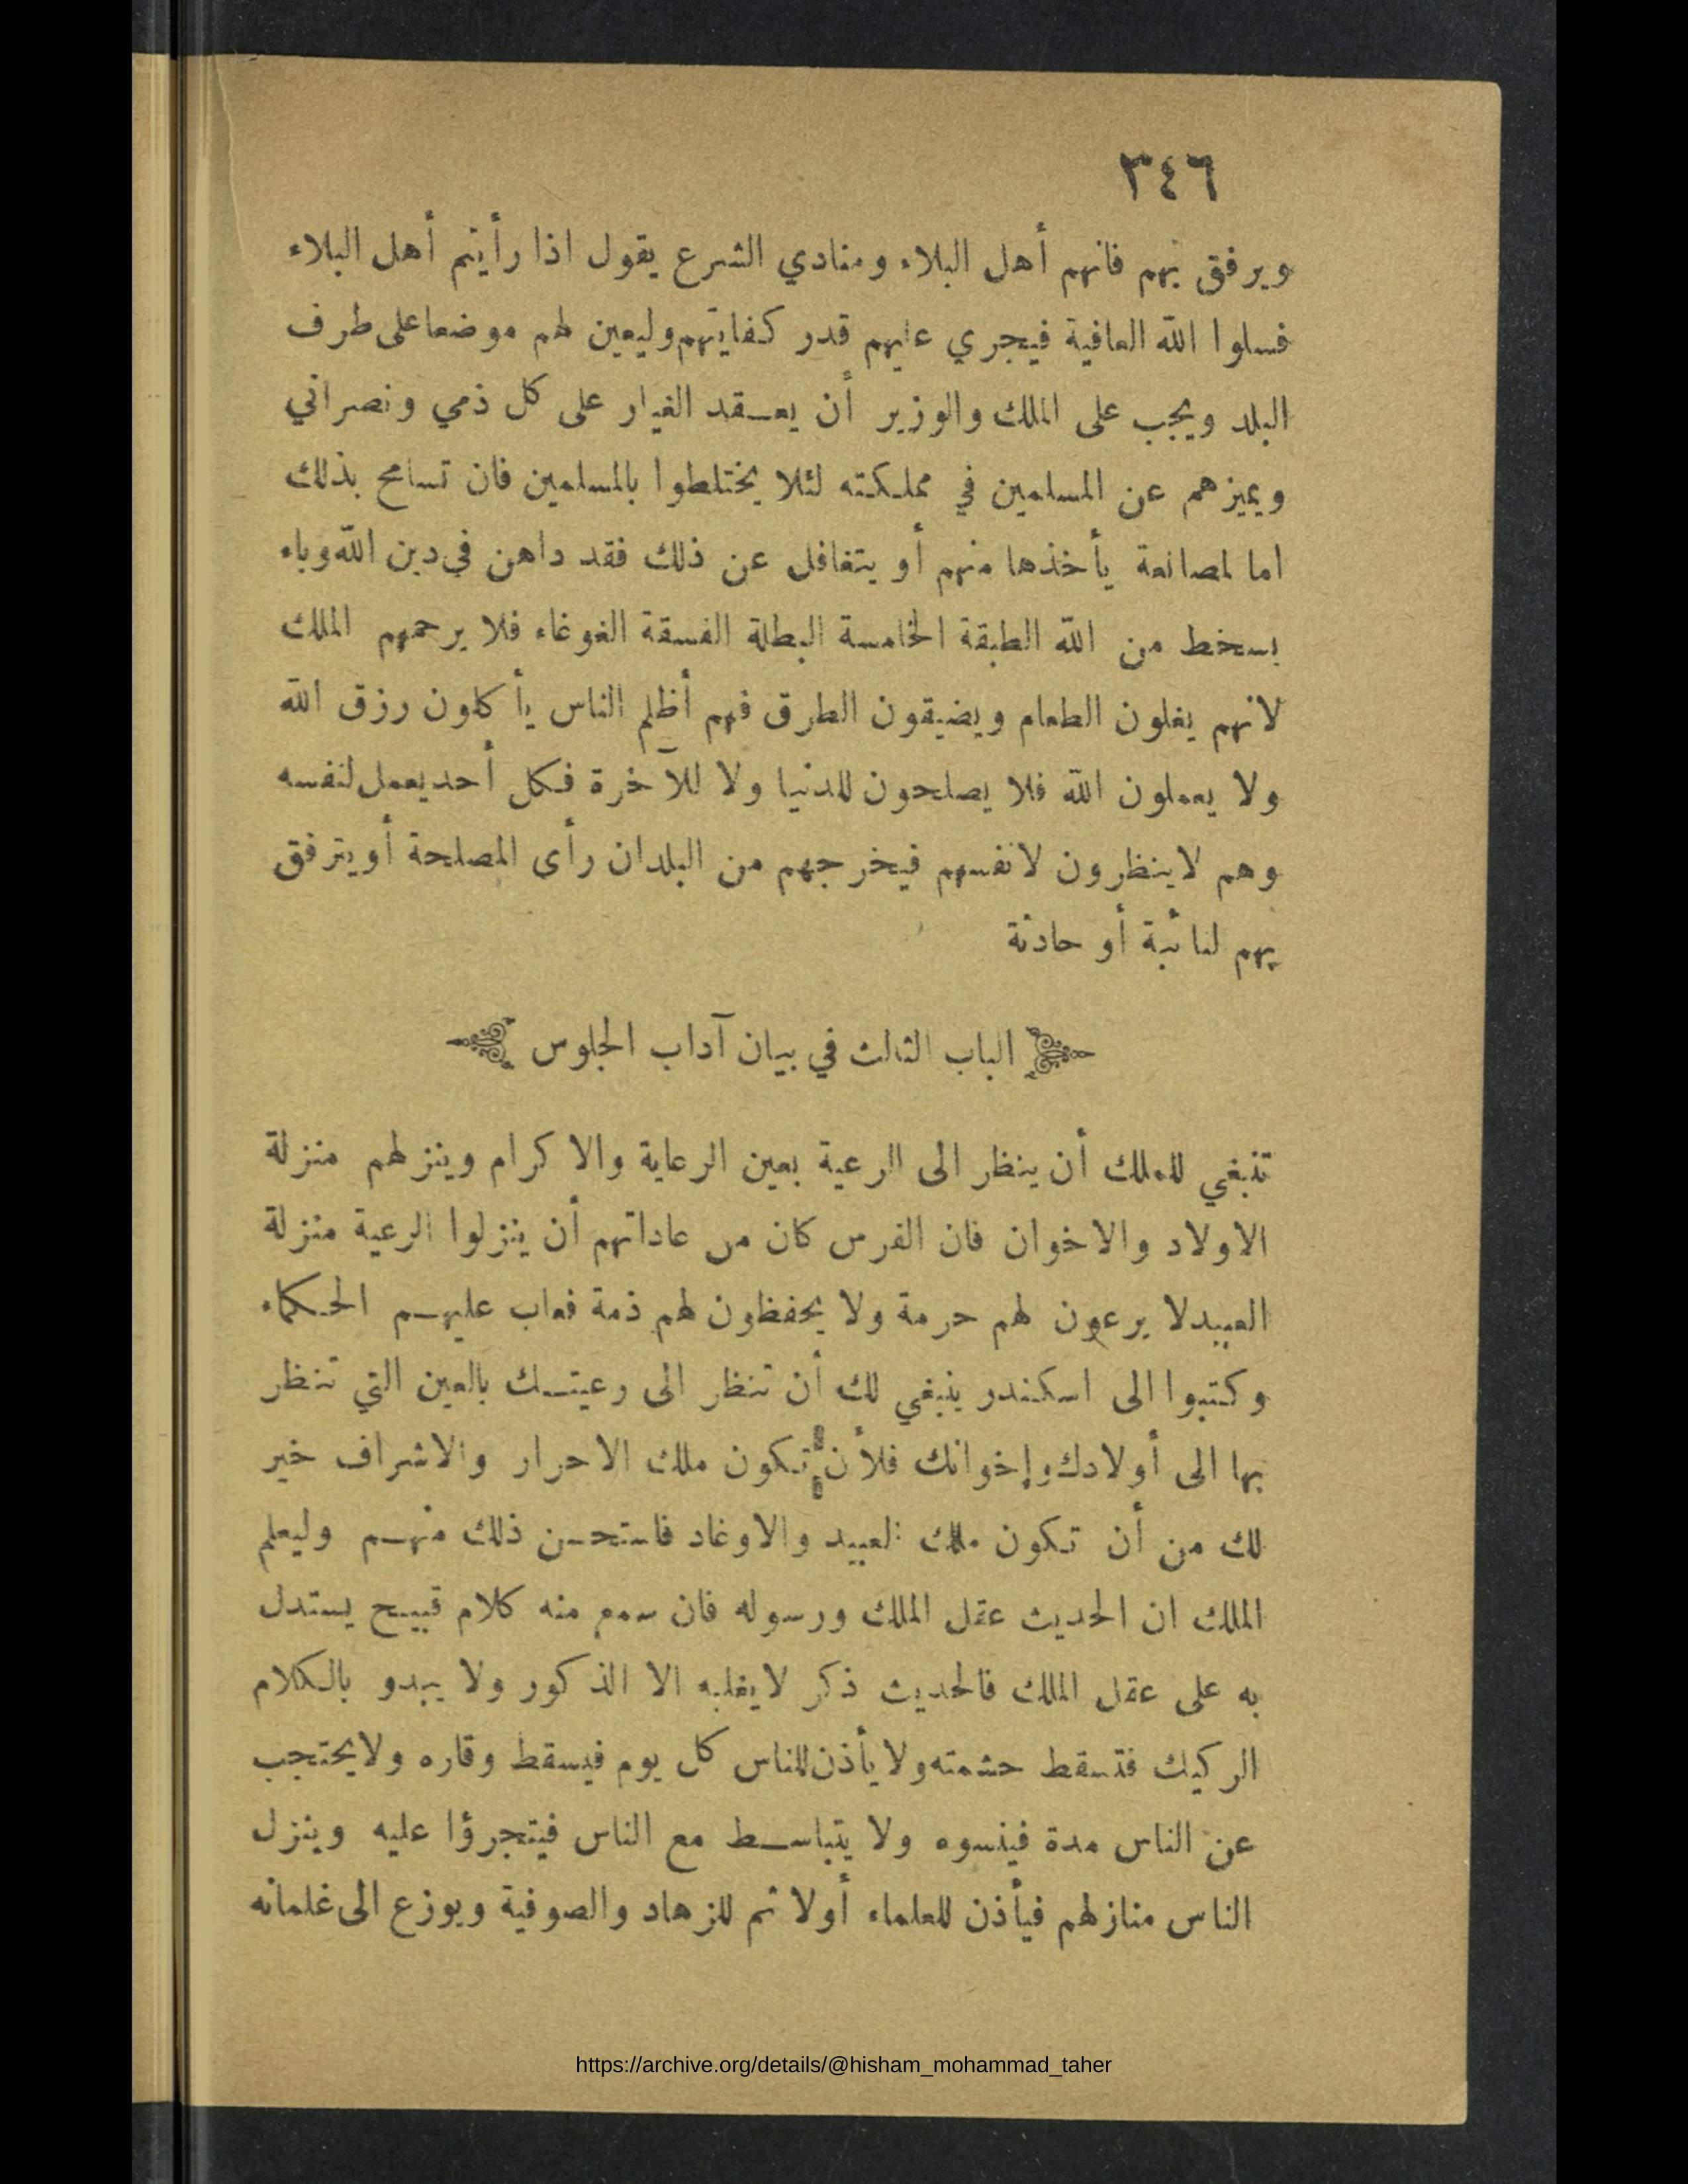 ٣٤٦
ويرفق بهم فانهم أهل البلاء ومنادي الشرع يقول اذا رأيتم أهل البلاء
فسلوا الله العافية فيجري عليهم قدر كفايتهم وليعين لهم موضعا على طرف
البلد ويجب على الملك والوزير أن يعقد الغيار على كل ذمي ونصراني
ويميزهم عن المسلمين في مملكته لئلا يختلطوا بالمسلمين فان تسامح بذلك
اما لمصانعة يأخذها منهم أو يتغافل عن ذلك فقد داهن في دين الله وباء
بسخط من الله الطبقة الخامسة البطلة الفسقة الغوغاء فلا يرحمهم الملك
لانهم يغلون الطعام ويضيقون الطرق فهم أظلم الناس يأكلون رزق الله
ولا يعملون الله فلا يصلحون للدنيا ولا للآخرة فكل أحد يعمل لنفسه
وهم لا ينظرون لانفسهم فيخرجهم من البلدان رأى المصلحة أو يترفق
بهم لنائبة أو حادثة
الباب الثالث في بيان آداب الجلوس
تنبغي للملك أن ينظر الى الرعية بعين الرعاية والاكرام وينزلهم منزلة
الاولاد والاخوان فان الفرس كان من عاداتهم أن ينزلوا الرعية منزلة
العبيد لا يرعون لهم حرمة ولا يحفظون لهم ذمة فعاب عليهم الحكماء
وكتبوا الى اسكندر ينبغي لك أن تنظر الى رعيتك بالعين التي تنظر
بها الى أولادك وإخوانك فلأن تكون ملك الاحرار والاشراف خير
لك من أن تكون ملك العبيد والاوغاد فاستحسن ذلك منهم وليعلم
الملك ان الحديث عقل الملك ورسوله فان سمع منه كلام قبيح يستدل
به على عقل الملك فالحديث ذكر لا يغلبه الا الذكور ولا يبدو بالكلام
الركيك فتسقط حشمته ولا يأذن للناس كل يوم فيسقط وقاره ولا يحتجب
عن الناس مدة فينسوه ولا يتباسط مع الناس فيتجرؤا عليه وينزل
الناس منازلهم فيأذن للعلماء أولا ثم للزهاد والصوفية ويوزع الى غلمانه
https://archive.org/details/@hisham_mohammad_taher